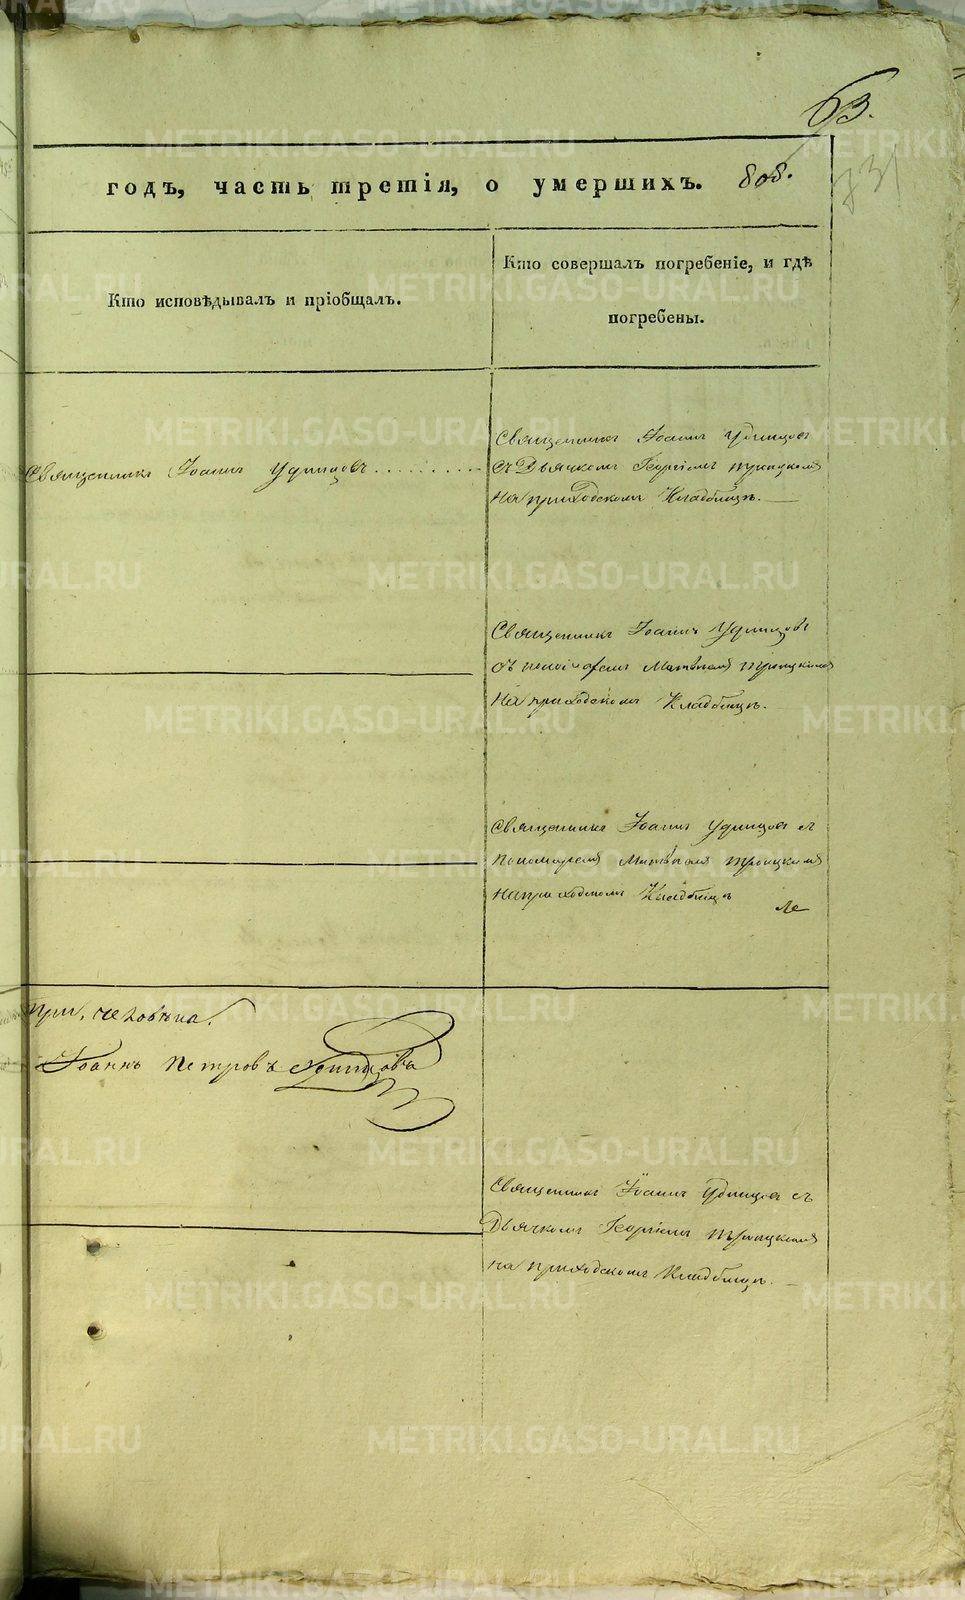 63.
731
годъ, часть третія, о умершихъ. 808.
Кто исповѣдывалъ и пріобщалъ.
Кто совершалъ погребеніе, и гдѣ
погребены.
Священникъ Іоаннъ Удинцовъ..........
Священникъ Іоаннъ Удинцовъ
съ Дьячкомъ Георгіемъ Троицкимъ
на приходскомъ Кладбищѣ.
Священникъ Іоаннъ Удинцовъ
съ пономаремъ Матвѣемъ Троицкимъ
на приходскомъ Кладбищѣ.
Священникъ Іоаннъ Удинцовъ съ
пономаремъ Матвѣемъ Троицкимъ
на приходскомъ Кладбищѣ
три, человѣка.
Іоаннъ Петровъ Удинцовъ
Священникъ Іоаннъ Удинцовъ съ
Дьячкомъ Георгіемъ Троицкимъ
на приходскомъ Кладбищѣ.
METRIKI.GASO-URAL.RU